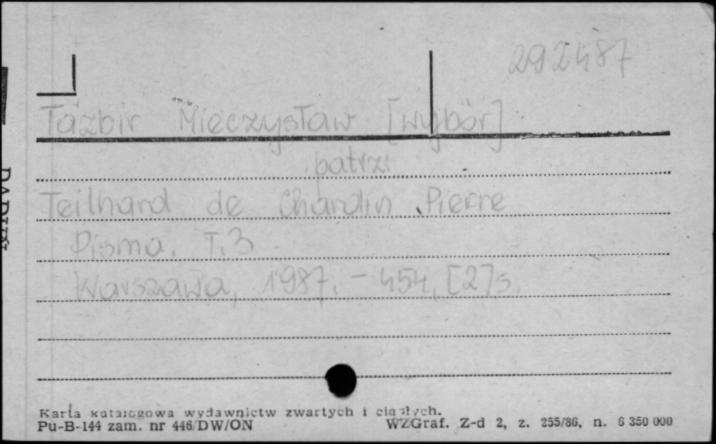 292487
Tazbir Mieczysław [wybór]
patrz
Teilhard de Chardin Pierre
Pisma. T. 3
Warszawa, 1987. - 454, [2] s.
Karta katalogowa wydawnictw zwartych i ciągłych.
Pu-B-144 zam. nr 446/DW/ON WZGraf. Z-d 2, z. 255/86, n. 6 350 000